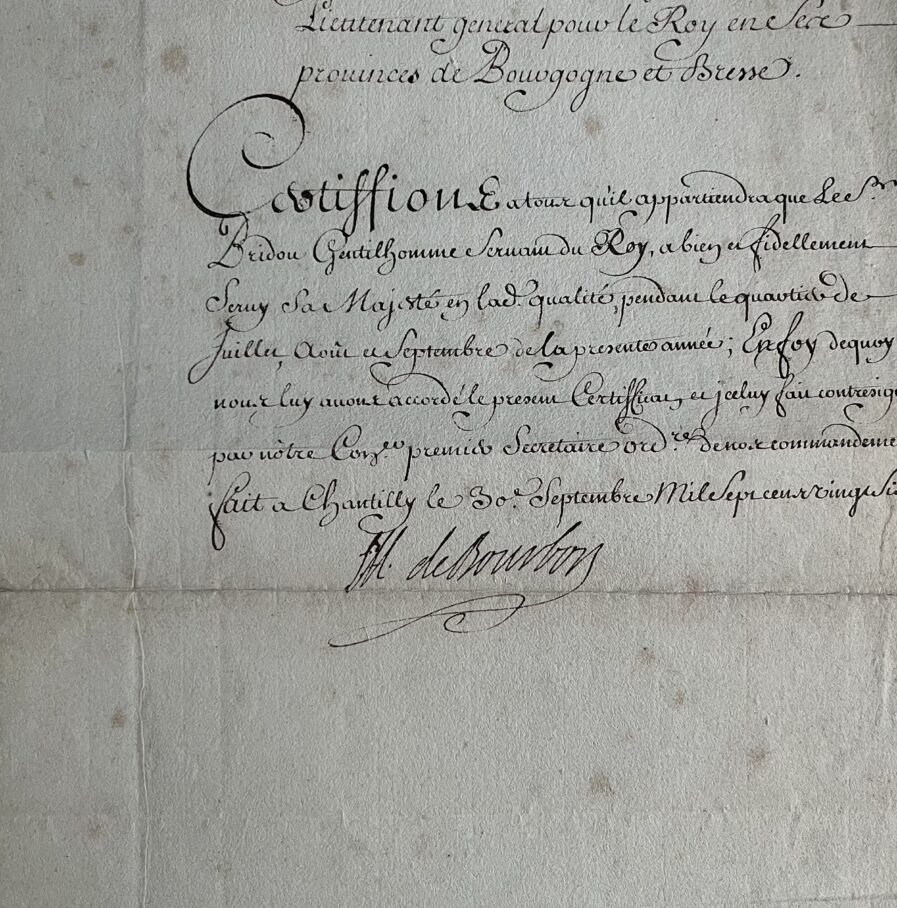 Lieutenant general pour le Roy en Ses
prouinces de Bourgogne et Bresse.
Certiffions a tous qu'il appartiendra que Le Sr.
Bridou Gentilhomme Seruant du Roy, a bien et fidellement
Seruy Sa Majesté en lad. qualité, pendant le quartier de
Juillet, Aoüt et Septembre de la presente année; En foy de quoy
nous luy auons accordé le present Certifficat, et iceluy fait contresig
par nôtre Conser. premier Secretaire ordre. de nos commandeme
fait a Chantilly le 30e. Septembre Mil Sept cens vingt si
de Bourbon